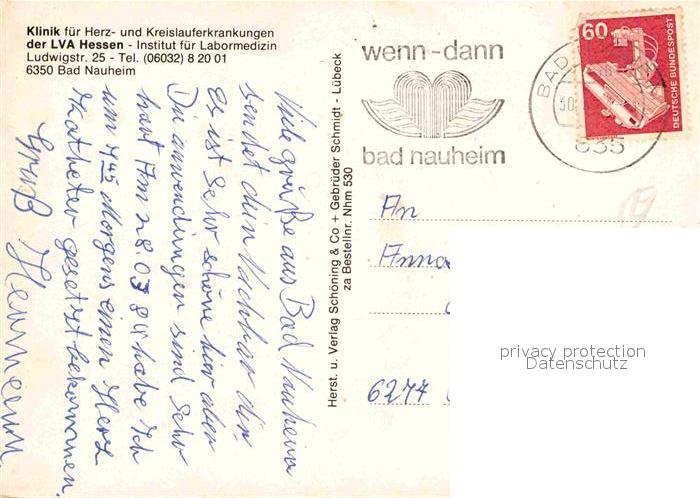 Klinik für Herz- und Kreislauferkrankungen
der LVA Hessen - Institut für Labormedizin
Ludwigstr. 25 - Tel. (06032) 8 20 01
6350 Bad Nauheim
Viele grüße aus Bad Nauheim
sendet dein Nachbar dir.
Es ist Sehr schöne hier aber
Die anwendungen sind Sehr
hart Am 28.03 84 habe Ich
um 4 Morgens einen Herz
Katheter gesetzt bekommen.
Gruß Hermann.
Herst. u. Verlag Schöning & Co + Gebrüder Schmidt - Lübeck
za Bestellnr. Nhm 530
wenn-dann
bad nauheim
BAD
30.
635
60
DEUTSCHE BUNDESPOST
An
Anna
6274
privacy protection
Datenschutz